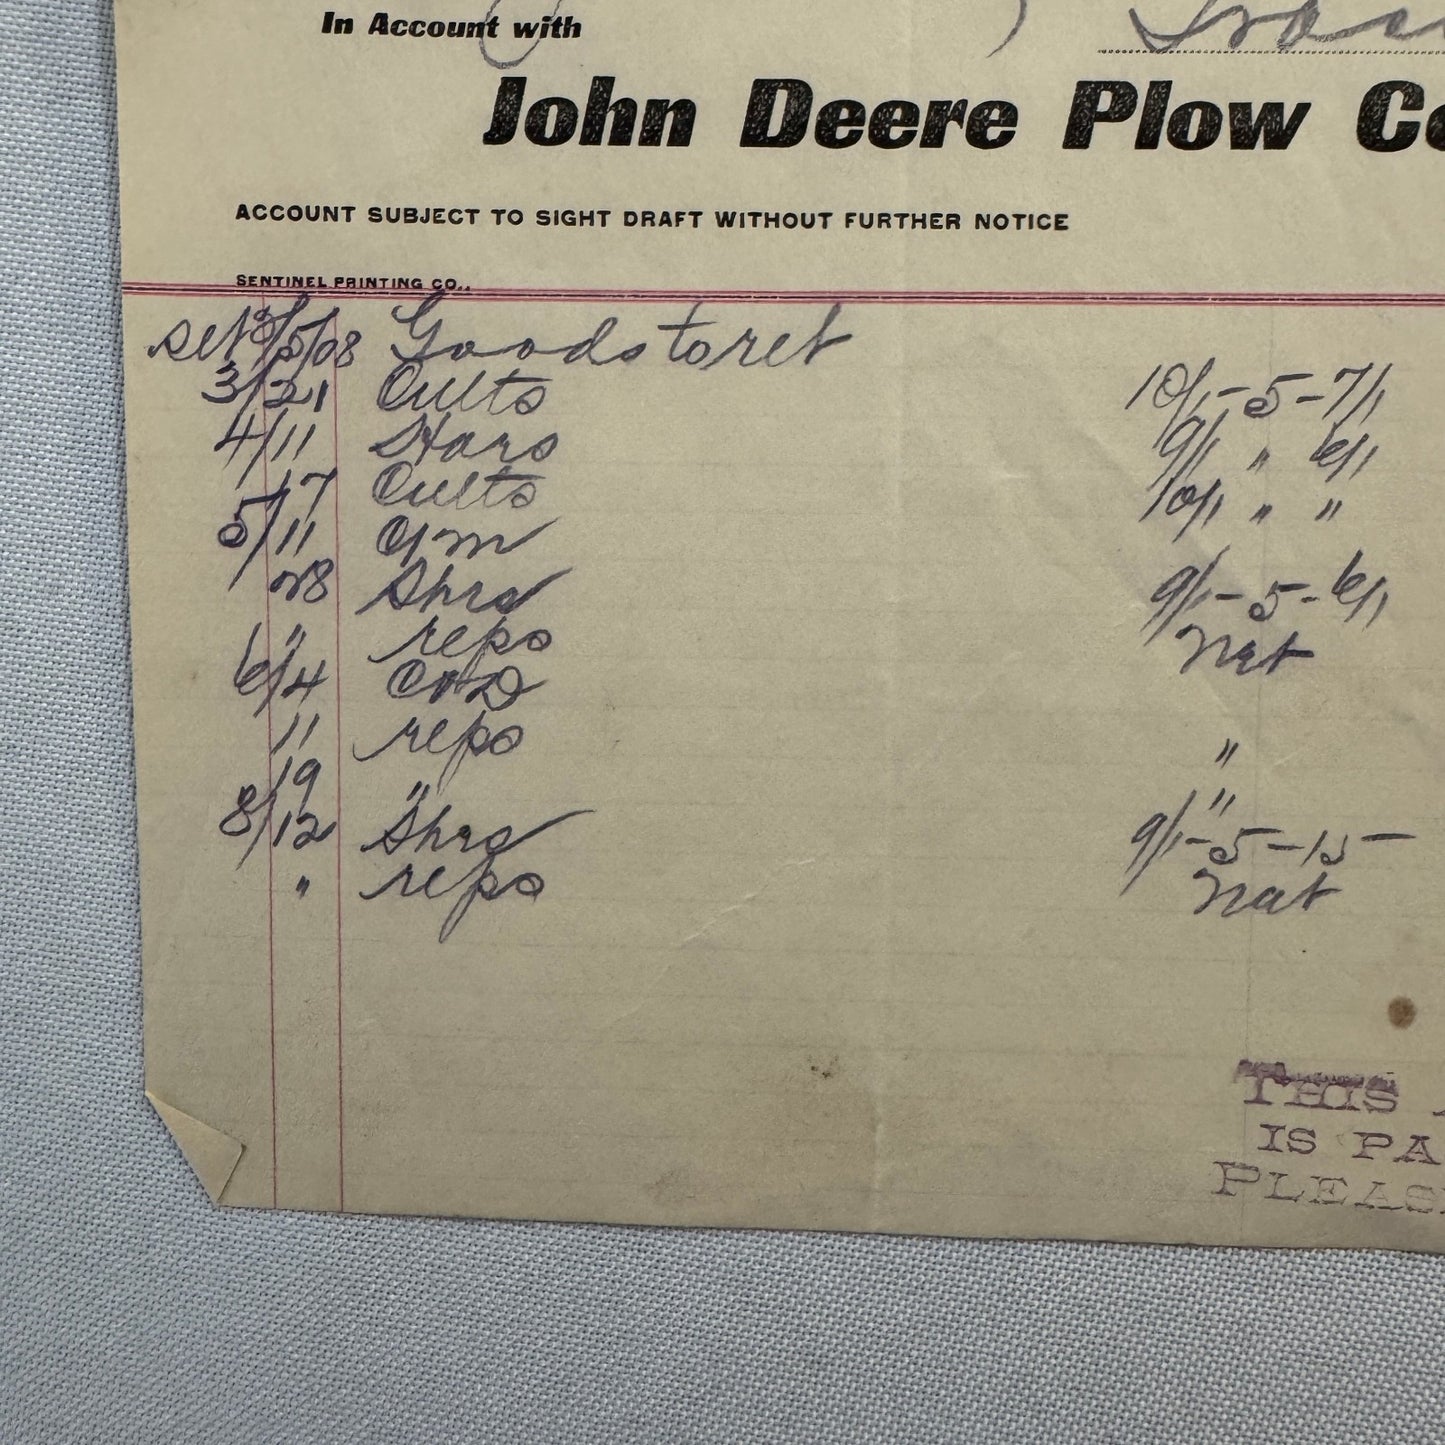 In Account with
John Deere Plow Co
ACCOUNT SUBJECT TO SIGHT DRAFT WITHOUT FURTHER NOTICE
SENTINEL PRINTING CO.,
3/5/08 Goods to ret
3/21 Cults 10/1-5-7/1
4/11 Hars 9/1 " 6/1
17 Cults 10/1 " "
5/11
28 Shrs 9/1-5-6/1
" repo Net
6/4
11 repo "
19 " "
8/12 Shrs 9/1-5-15-
" repo Net
THIS
IS PA
PLEAS